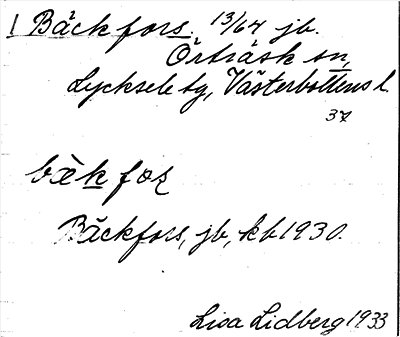 1 Bäckfors 13/64 jb.
Örträsk sn,
Lycksele tg, Västerbottens l.
37
bæ̀k foʂ
Bäckfors, jb, kb 1930.
Lisa Lidberg 1933